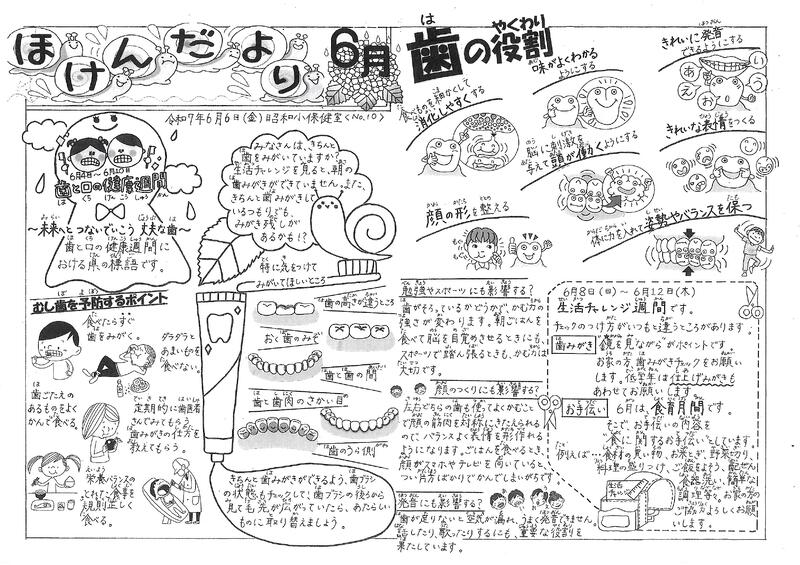 ほけんだより 6月
令和7年6月6日(金) 昭和小保健室 <No.10>
6月4日～6月10日
歯と口の健康週間
～未来へとつないでいこう 丈夫な歯～
歯と口の健康週間に
おける県の標語です。
みなさんは、きちんと
歯をみがいていますか?
生活チャレンジを見ると、朝の
歯みがきができていません。また、
きちんと歯みがきして
いるつもりでも、
みがき残しが
あるかも!?
特に気をつけて
みがいてほしいところ
歯の高さが違うところ
おく歯のみぞ
歯と歯の間
歯と歯肉のさかい目
歯のうら側
きちんと歯みがきができるよう、歯ブラシ
の状態もチェックして、歯ブラシの後ろから
見て毛先が広がっていたら、あたらしい
ものに取り替えましょう。
むし歯を予防するポイント
食べたらすぐ
歯をみがく。
ダラダラと
あまいもの
を食べない。
歯ごたえの
あるものをよく
かんで食べる。
定期的に歯医者
さんでみてもらう。
歯みがきの仕方を
教えてもらう。
栄養バランスの
とれた食事を
規則正しく
食べる。
歯の役割
食べものを細かくして
消化しやすくする
味がよくわかる
ようにする
きれいに発音
できるようにする
あ い う え お
脳に刺激を
与えて頭が働くようにする
きれいな表情をつくる
顔の形を整える
体に力を入れて姿勢やバランスを保つ
勉強やスポーツにも影響する?
歯がそろっているかどうかで、かむ力の
強さが変わります。朝ごはんを
食べて脳を目覚めさせるときにも、
スポーツで踏ん張るときも、かむ力は
大切です。
顔のつくりにも影響する?
左右どちらの歯も使ってよくかむこと
で顔の筋肉を対称にきたえられる
ので、バランスよく表情を形作れる
ようになります。ごはんを食べるとき、
顔がスマホやテレビを向いていると、
つい片方ばかりでかんでしまいがちです
発音にも影響する?
歯が足りないと空気が漏れ、うまく発音できません。
話したり、歌ったりするにも、重要な役割を
果たしています。
6月8日(日)～6月12日(木)
生活チャレンジ週間です。
チェックのつけ方がいつもと違うところがあります。
歯みがき 鏡を見ながらがポイントです。
お家の方、歯みがきチェックをお願い
します。低学年は仕上げみがきも
あわせてお願いします
お手伝い 6月は、食育月間です。
そこで、お手伝いの内容を
「食に関するお手伝い」とします。
例えば…食材の買い物、お米とぎ、野菜切り、
料理の盛りつけ、ご飯をよそう、配ぜん、
食器洗い、簡単な
調理等々、お家の方の
ご協力よろしくお願
いします。
生活
チャレンジ